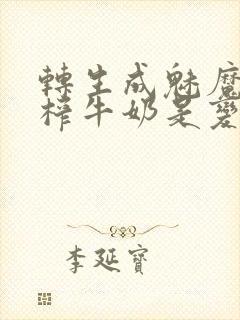 轉生成魅魔
榨牛奶是變
李延寶